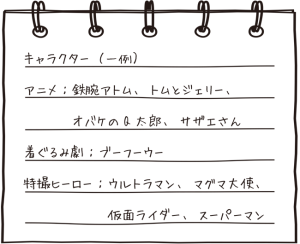 キャラクター (一例)
アニメ；鉄腕アトム、トムとジェリー、
オバケのQ太郎、サザエさん
着ぐるみ劇；ブーフーウー
特撮ヒーロー；ウルトラマン、マグマ大使、
仮面ライダー、スーパーマン